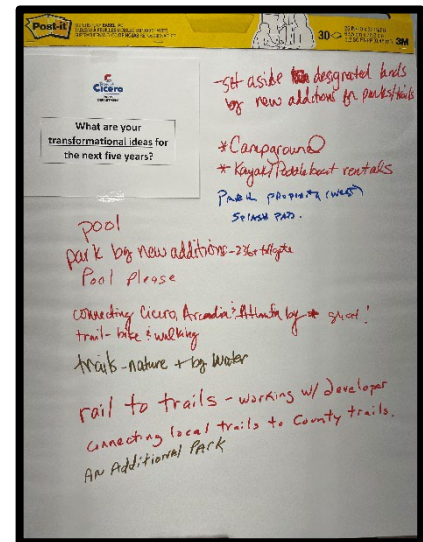 Post-it
30
3M
Cicero
What are your
transformational ideas for
the next five years?
-set aside designated lands
by new additions for parks/trails
*Campground
*Kayak/Paddle boat rentals
Park property (west)
Splash Pad.
pool
park by new additions - 236 + tollgate
Pool Please
connecting Cicero, Arcadia & Atlanta by * great!
trail - bike & walking
trails - nature + by water
rail to trails - working w/ developer
connecting local trails to County trails.
An Additional Park